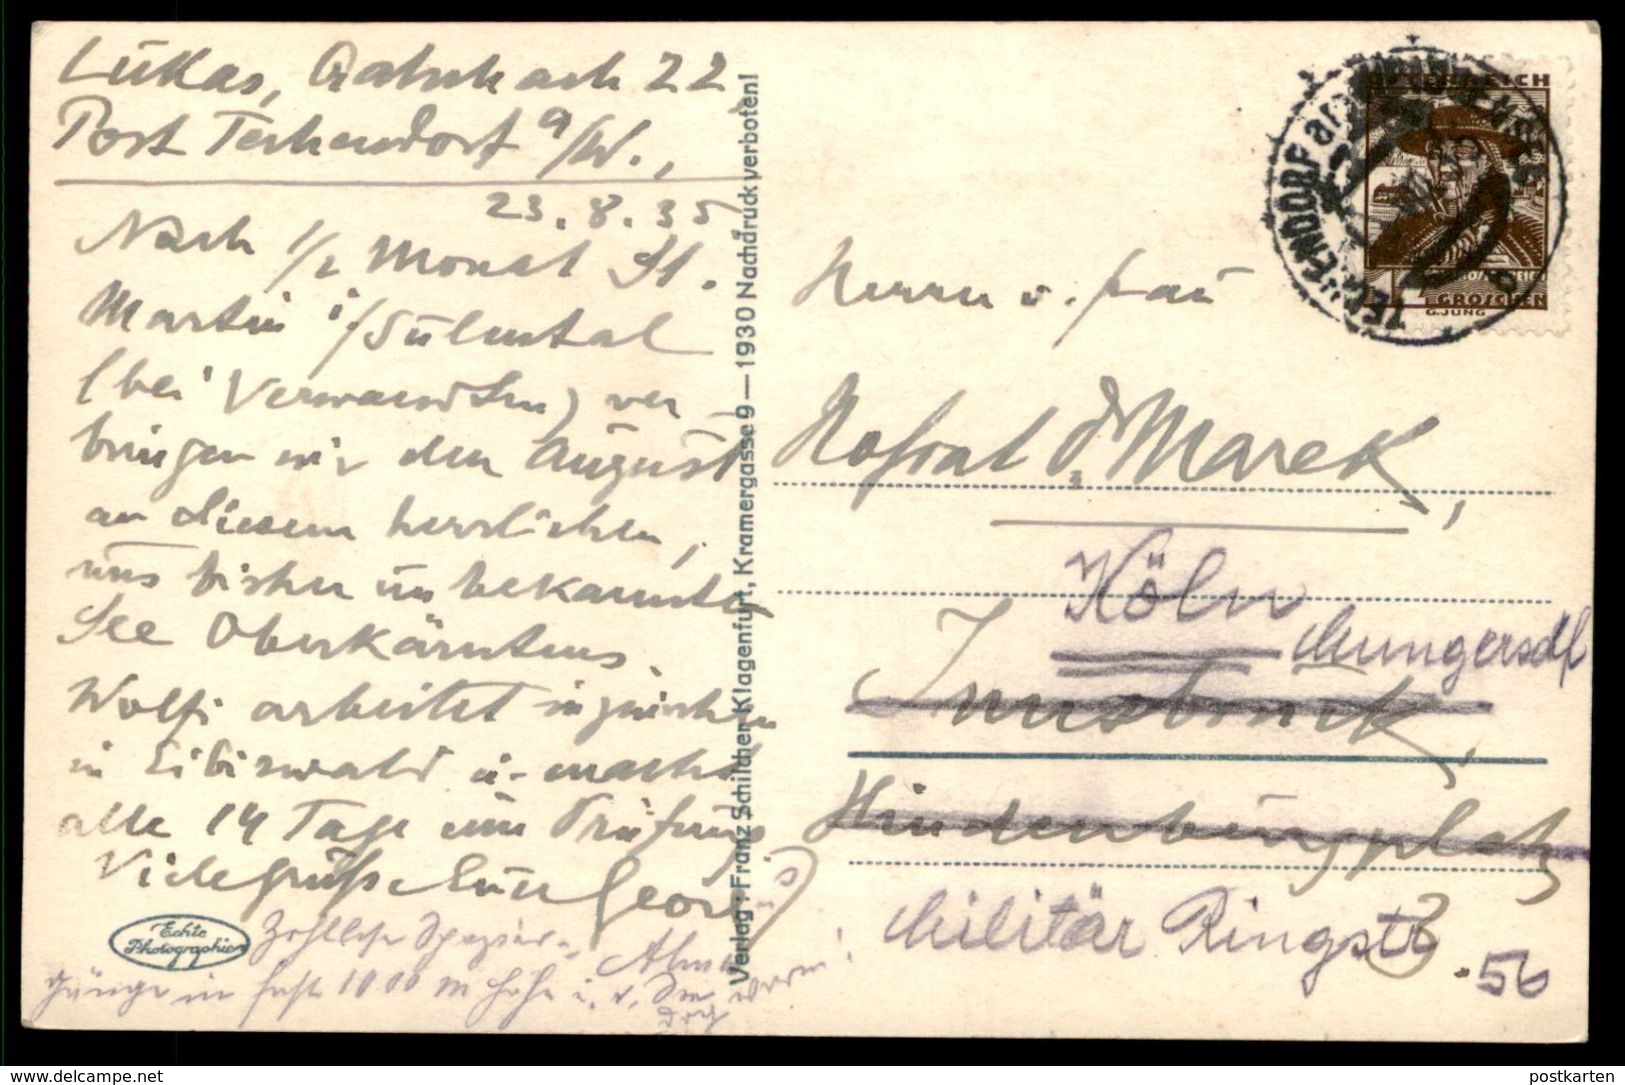 Lukas, Gatschach 22,
Post Techendorf a/W.,
23.8.35
Nach 1/2 Monat St.
Martin i/Sulmtal
(bei Verwandten) ver
bringen wir den August
an diesem herrlichen,
uns bisher unbekannten
See Oberkärntens.
Wolfi arbeitet inzwischen
in Eibiswald u. macht
alle 14 Tage eine Prüfung.
Viele Grüße Euer Georg
Echte
Photographie
gänge in fast 1000 m Höhe
Verlag: Franz Schilcher, Klagenfurt, Kramergasse 9 — 1930 Nachdruck verboten!
ÖSTERREICH
GROSCHEN
G.JUNG
TECHENDORF am WEISSENSEE
Herrn u. Frau
Hofrat Dr Marek,
Köln
Mungersdf
Innsbruck,
Hindenburgplatz
3
Militär Ringstr
56
www.delcampe.net
postkarten